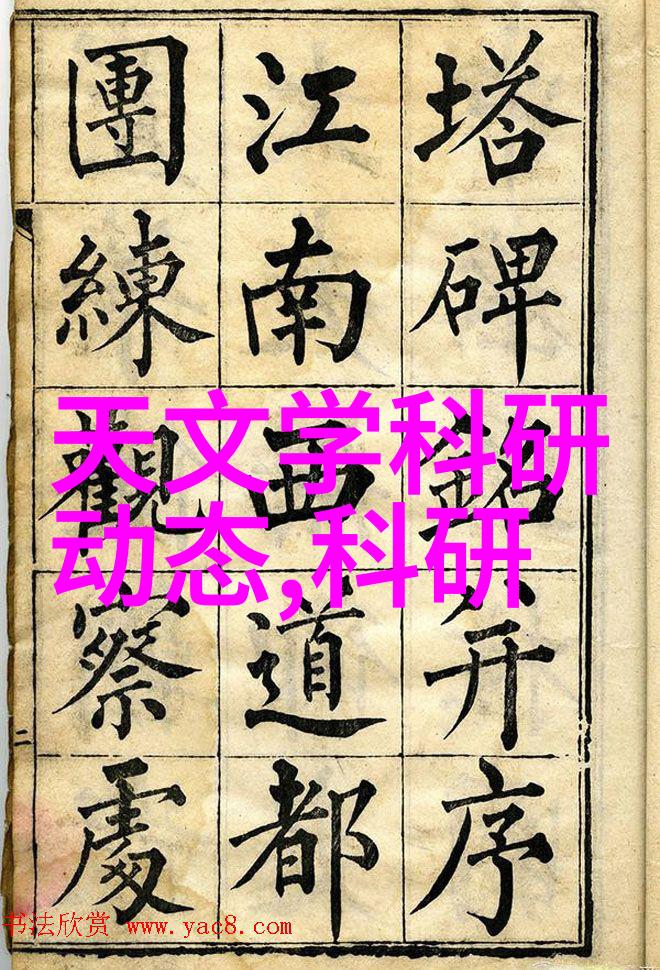 塔碑銘并序
江南西道都
團練觀察處
二
天文学科研
动态,科研
书法欣赏 www.yac8.com